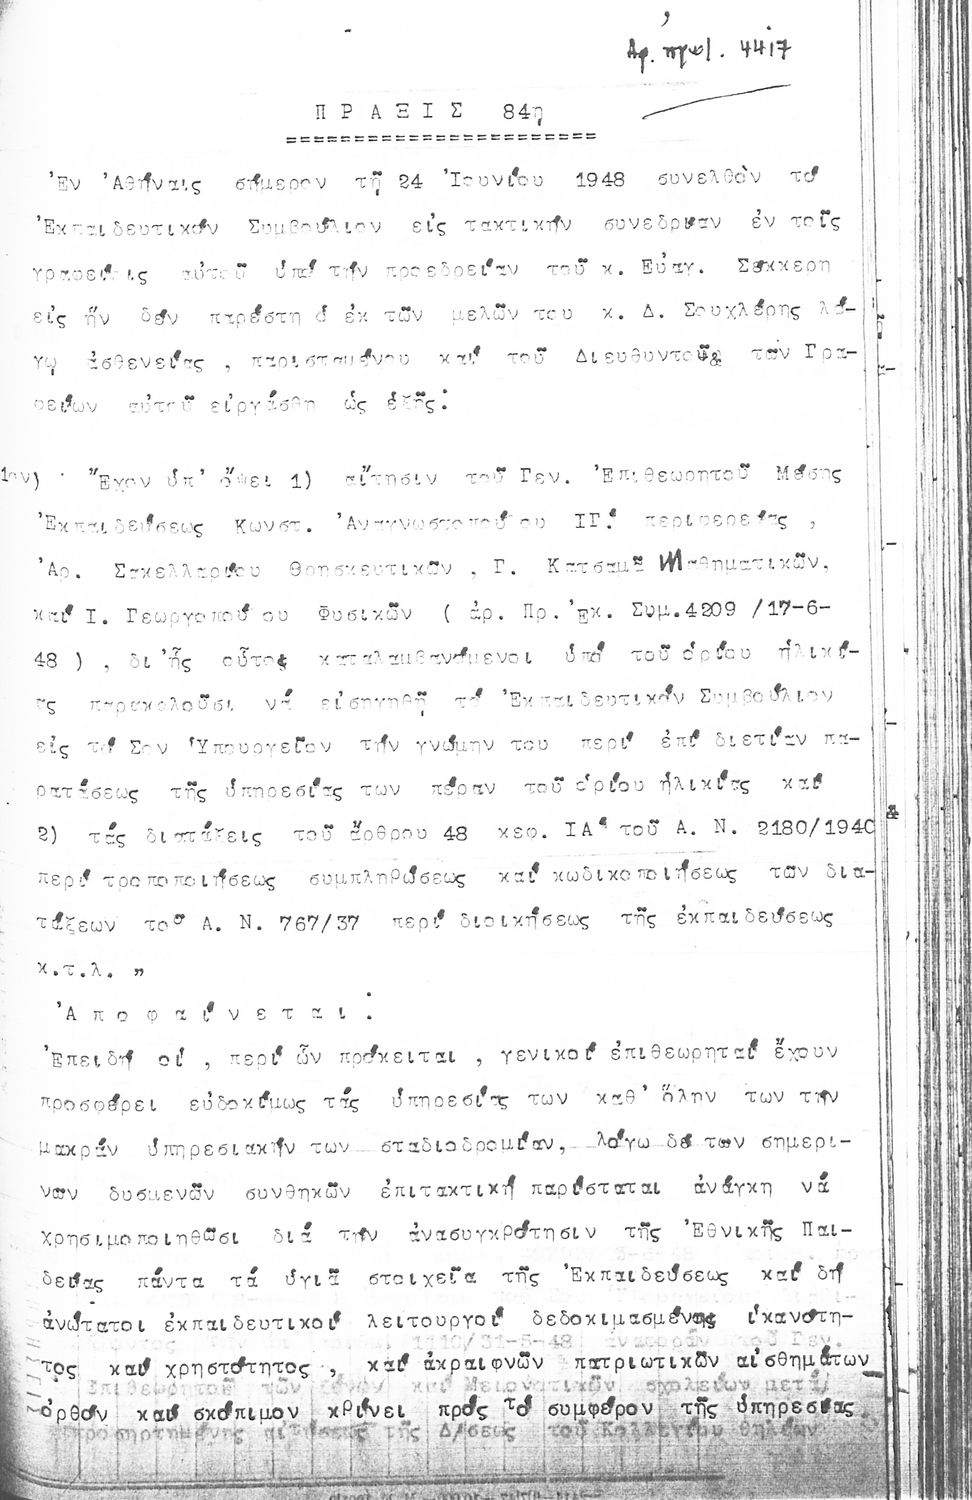 Ἀρ. πρωτ. 4417
ΠΡΑΞΙΣ 84η
Ἐν Ἀθήναις σήμερον τῇ 24 Ἰουνίου 1948 συνελθόν τό
Ἐκπαιδευτικόν Συμβούλιον εἰς τακτικήν συνεδρίαν ἐν τοῖς
γραφείοις αὐτοῦ ὑπό τήν προεδρείαν τοῦ κ. Εὐαγ. Σέκκερη
εἰς ἥν δέν παρέστη ὁ ἐκ τῶν μελῶν του κ. Δ. Σουχλέρης λό-
γῳ ἀσθενείας , παρισταμένου καί τοῦ Διευθυντοῦ τῶν Γρα-
φείων αὐτοῦ εἰργάσθη ὡς ἑξῆς:
1ον) Ἔχον ὑπ' ὄψει 1) αἴτησιν τοῦ Γεν. Ἐπιθεωρητοῦ Μέσης
Ἐκπαιδεύσεως Κωνστ. Ἀναγνωστοπούλου ΙΓ΄. περιφερείας ,
Ἀρ. Σακελλαρίου Θρησκευτικῶν , Γ. Κατσαμᾶ Μαθηματικῶν,
καί Ι. Γεωργοπούλου Φυσικῶν ( ἀρ. Πρ. Ἐκ. Συμ.4209 /17-6-
48 ) , δι'ἧς οὗτοι καταλαμβανόμενοι ὑπό τοῦ ὁρίου ἡλικί-
ας παρακαλοῦσι νά εἰσηγηθῇ τό Ἐκπαιδευτικόν Συμβούλιον
εἰς τό Σον Ὑπουργεῖον τήν γνώμην του περί ἐπί διετίαν πα-
ρατάσεως τῆς ὑπηρεσίας των πέραν τοῦ ὁρίου ἡλικίας καί
2) τάς διατάξεις τοῦ ἄρθρου 48 κεφ. ΙΑ΄ τοῦ Α. Ν. 2180/1940
περί τροποποιήσεως συμπληρώσεως καί κωδικοποιήσεως τῶν δια-
τάξεων τοῦ Α. Ν. 767/37 περί διοικήσεως τῆς ἐκπαιδεύσεως
κ.τ.λ. "
Ἀποφαίνεται:
Ἐπειδή οἱ , περί ὧν πρόκειται , γενικοί ἐπιθεωρηταί ἔχουν
προσφέρει εὐδοκίμως τάς ὑπηρεσίας των καθ' ὅλην των τήν
μακράν ὑπηρεσιακήν των σταδιοδρομίαν, λόγω δέ των σημερι-
νων δυσμενῶν συνθηκῶν ἐπιτακτική παρίσταται ἀνάγκη νά
χρησιμοποιηθῶσι διά τήν ἀνασυγκρότησιν τῆς Ἐθνικῆς Παι-
δείας πάντα τά ὑγιᾶ στοιχεῖα τῆς Ἐκπαιδεύσεως καί δή
ἀνώτατοι ἐκπαιδευτικοί λειτουργοί δεδοκιμασμένης ἱκανότη-
τος καί χρηστότητος , καί ἀκραιφνῶν πατριωτικῶν αἰσθημάτων
ὀρθόν καί σκόπιμον κρίνει πρός τό συμφέρον τῆς ὑπηρεσίας